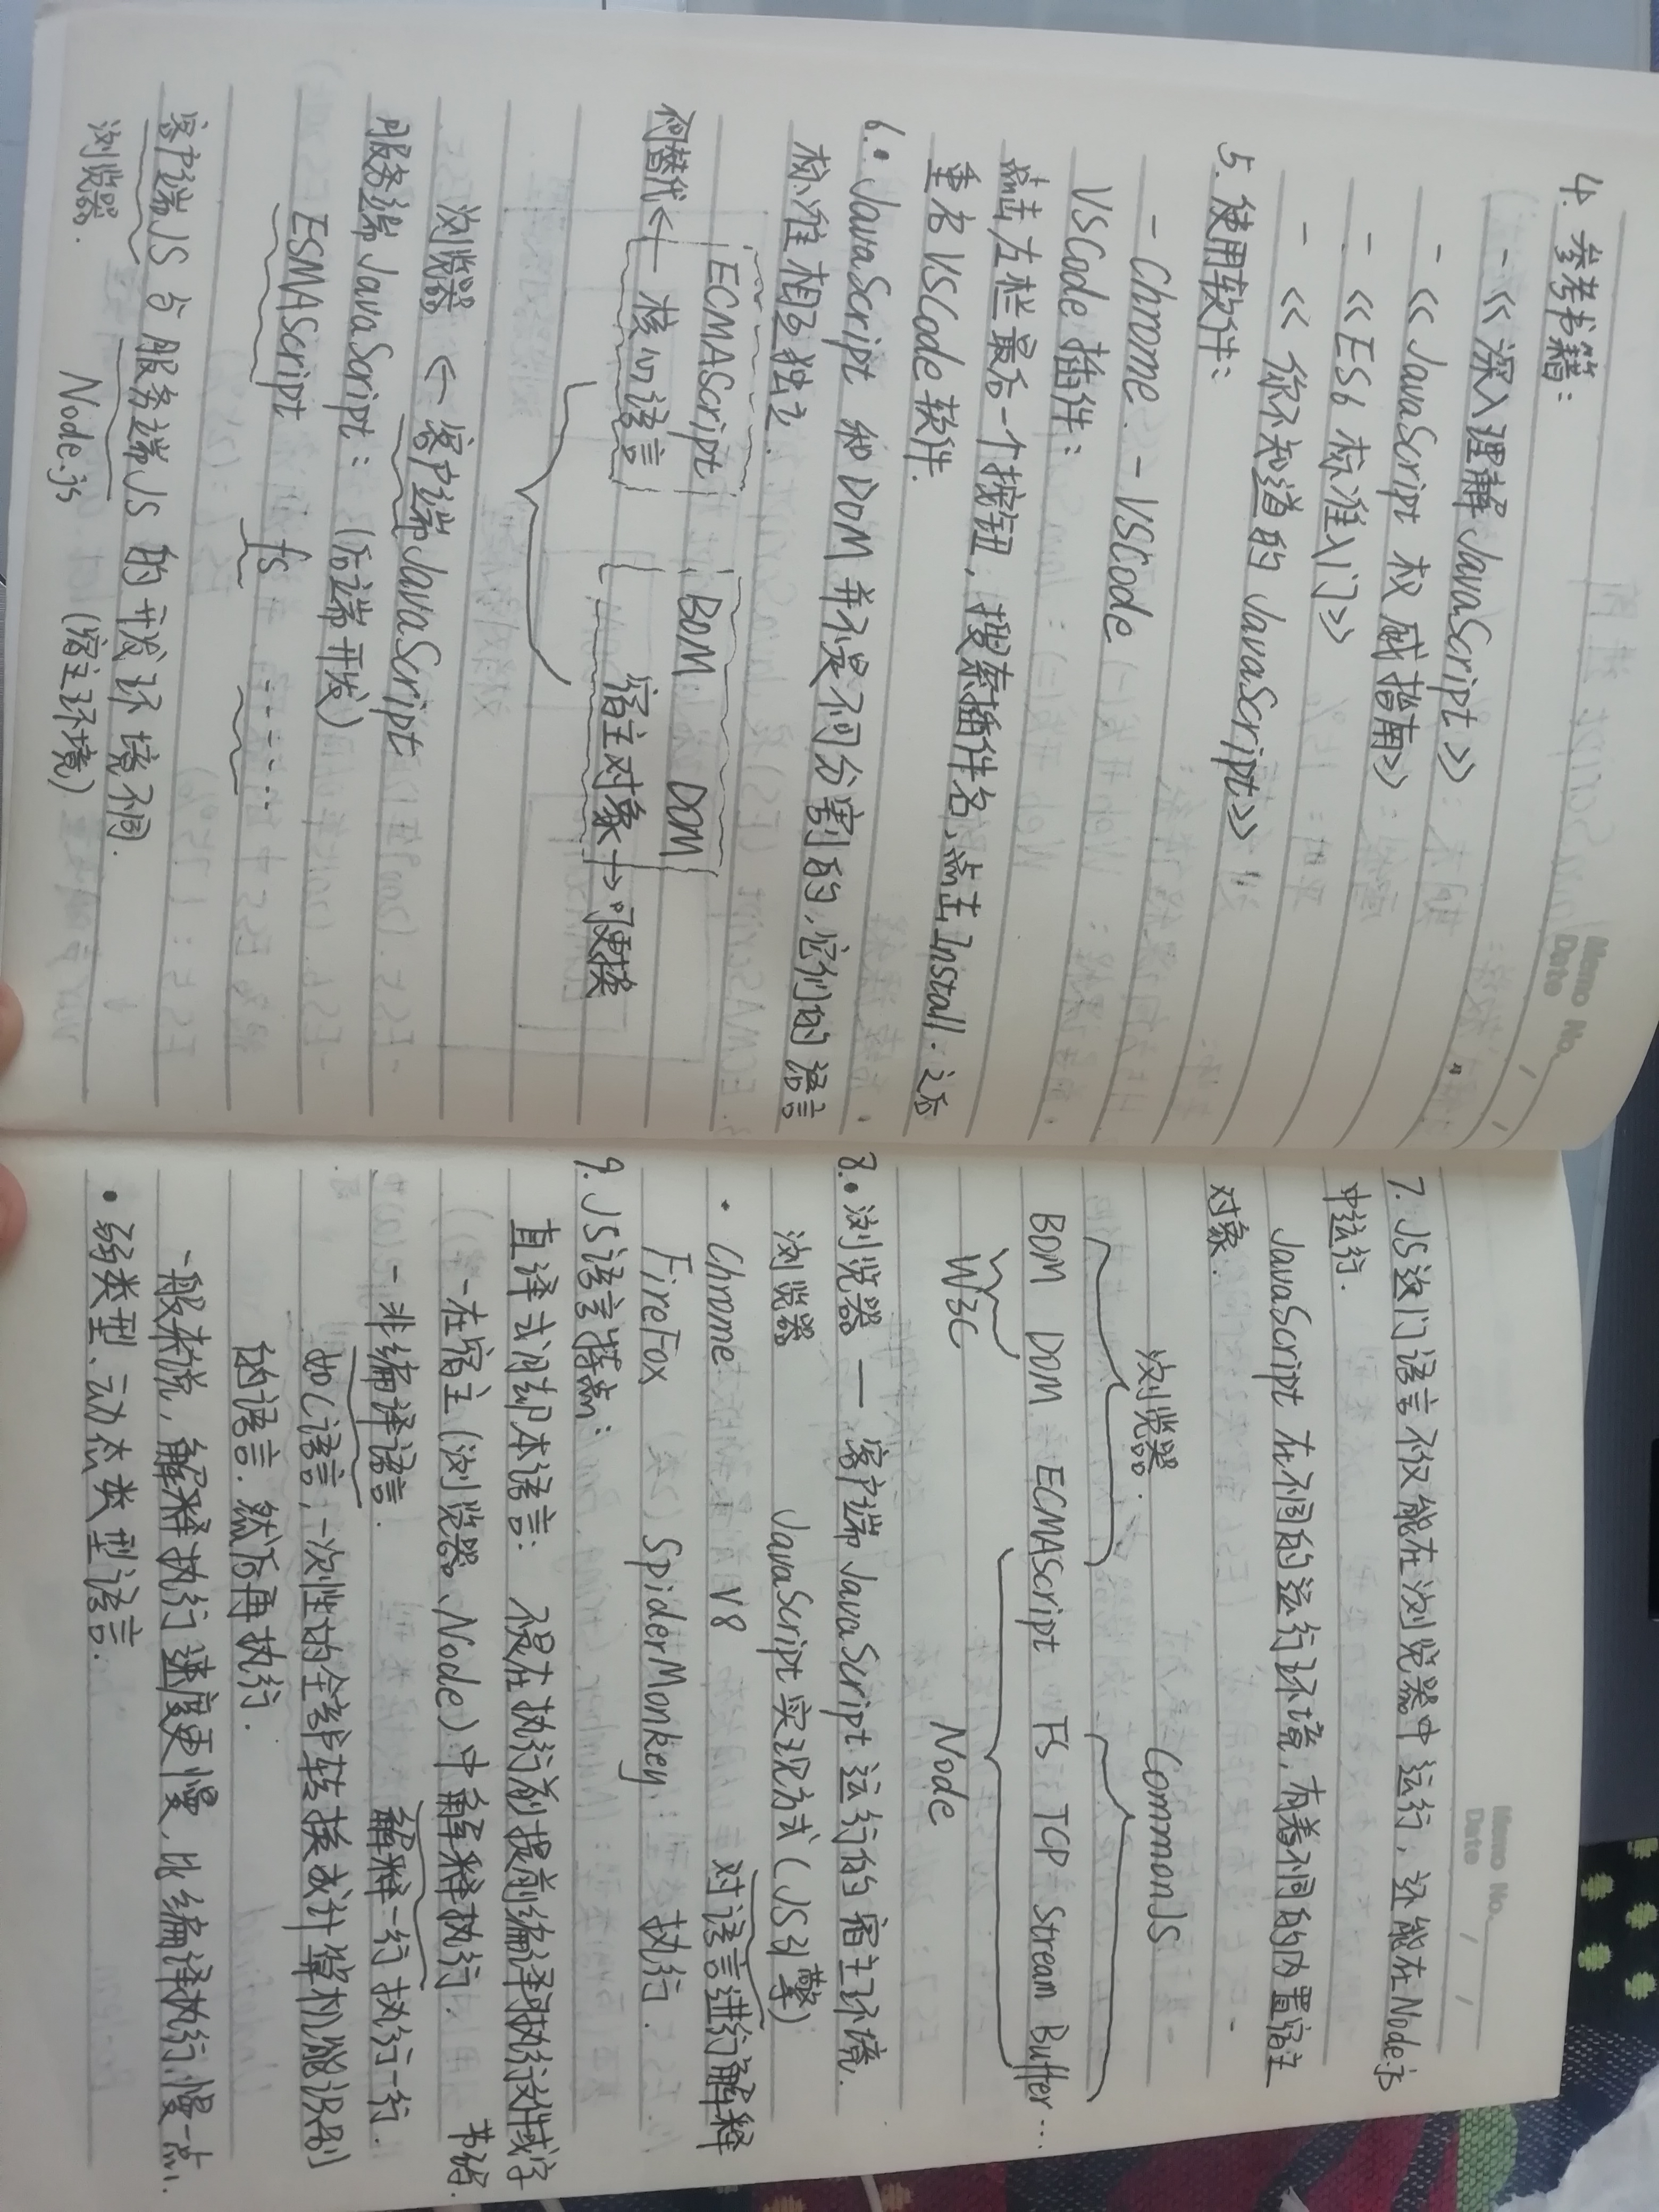 Memo No.
Date
4. 参考书籍:
- <<深入理解JavaScript>>
- <<JavaScript 权威指南>>
- <<ES6 标准入门>>
- <<你不知道的 JavaScript>>
5. 使用软件:
- Chrome. - VSCode
VSCode 插件:
点击左栏最后一个按钮, 搜索插件名, 点击Install. 之后
重启VSCode软件.
6.• JavaScript 和 DOM 并不是不可分割的, 它们的语言
标准相互独立.
ECMAScript BOM DOM
可替代 ← 核心语言 宿主对象 → 可更换
浏览器 ← 客户端JavaScript
服务端JavaScript: (后端开发)
ESMAScript fs ......
客户端JS 与服务端JS 的开发环境不同.
浏览器. Node.js (宿主环境)
Memo No.
Date
7. JS这门语言不仅能在浏览器中运行, 还能在Node.js
中运行.
JavaScript 在不同的运行环境, 有着不同的内置宿主
对象.
浏览器. CommonJS
BOM DOM ECMAScript FS TCP Stream Buffer ...
W3C Node
8.• 浏览器 — 客户端JavaScript 运行的宿主环境.
浏览器 JavaScript实现方式(JS引擎)
• Chrome V8 对语言进行解释
FireFox SpiderMonkey 执行.
9. JS语言特点:
直译式脚本语言: 不是在执行前提前编译可执行文件或字
节码.
- 在宿主(浏览器、Node)中解释执行.
- 非编译语言. 解释一行执行一行.
如C语言, 一次性的全部转换成计算机能识别
的语言. 然后再执行.
一般来说, 解释执行速度更慢, 比编译执行慢一点.
• 弱类型、动态类型语言.